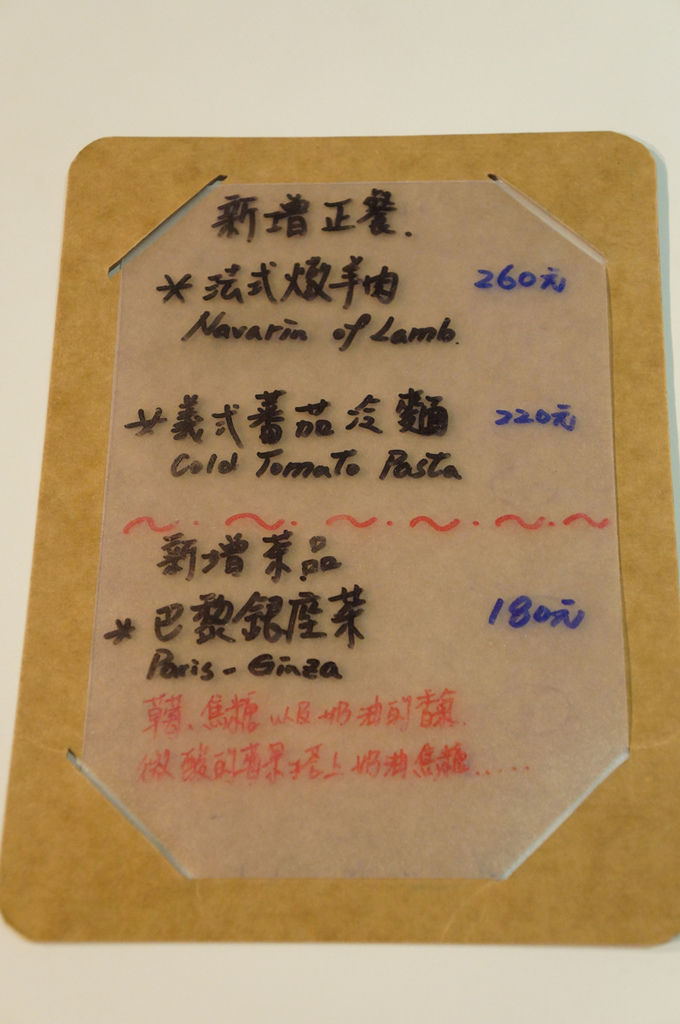 新增正餐.
* 法式燉羊肉 260元
Navarin of Lamb.
* 義式蕃茄冷麵 220元
Cold Tomato Pasta
~.~.~.~.~.~
新增茶品
* 巴黎銀座茶 180元
Paris-Ginza
草莓、焦糖以及奶油的香氣.
微酸的莓果搭上奶油焦糖.....